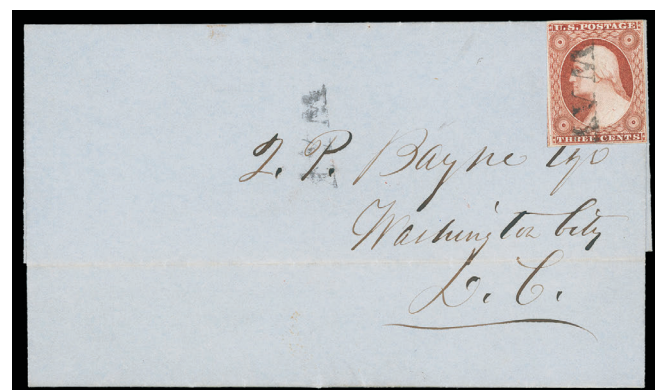 U.S. POSTAGE
THREE CENTS
Bayne
Washington City
D. C.